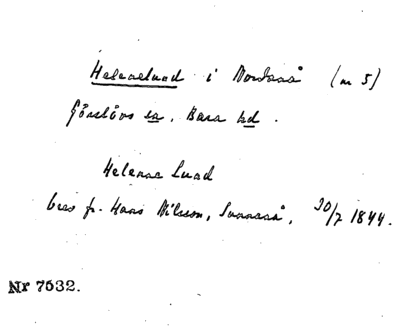 Helenelund i Nordanå (n 5)
Görslövs sn, Bara hd.
Helena Lund
brev fr. Hans Nilsson, Sunnanå, 30/7 1844.
Nr 7532.